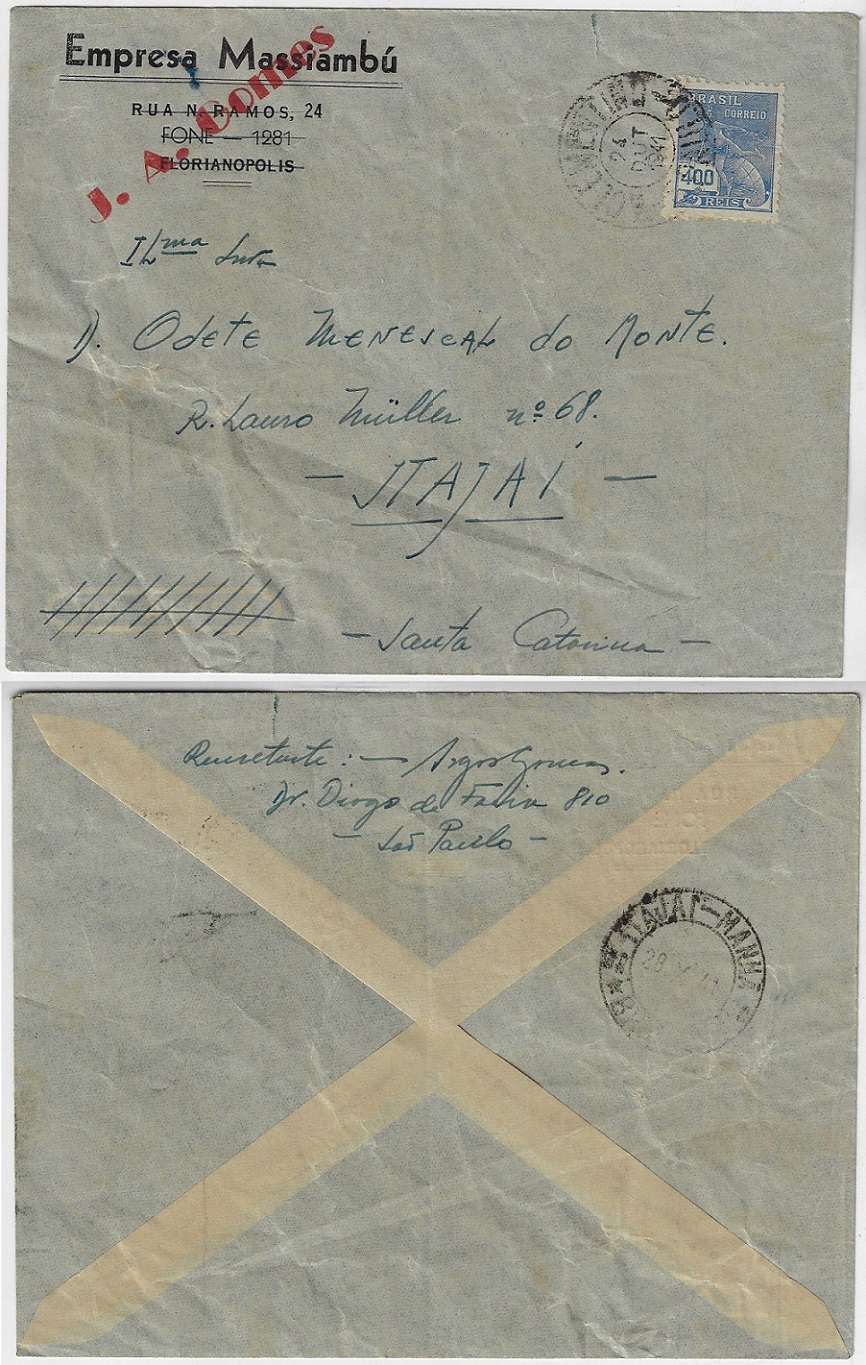 Empresa Massiambú
J. A. Gomes
RUA N. RAMOS, 24
FONE — 1281
FLORIANOPOLIS
24
OUT
1941
BRASIL
CORREIO
400
REIS
Ilma Snra
D. Odete Menescal do Monte.
R. Lauro Müller nº 68.
— ITAJAÍ —
— Santa Catarina —
Remetente: — Argos Gomes.
Dr. Diogo de Faria 810
— São Paulo —
ITAJAÍ — MANHÃ
28